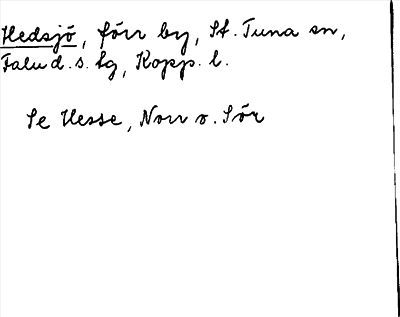 Hedsjö, förr by, St. Tuna sn,
Falu d.s. lg, Kopp. l.
Se Hesse, Norr o. Sör